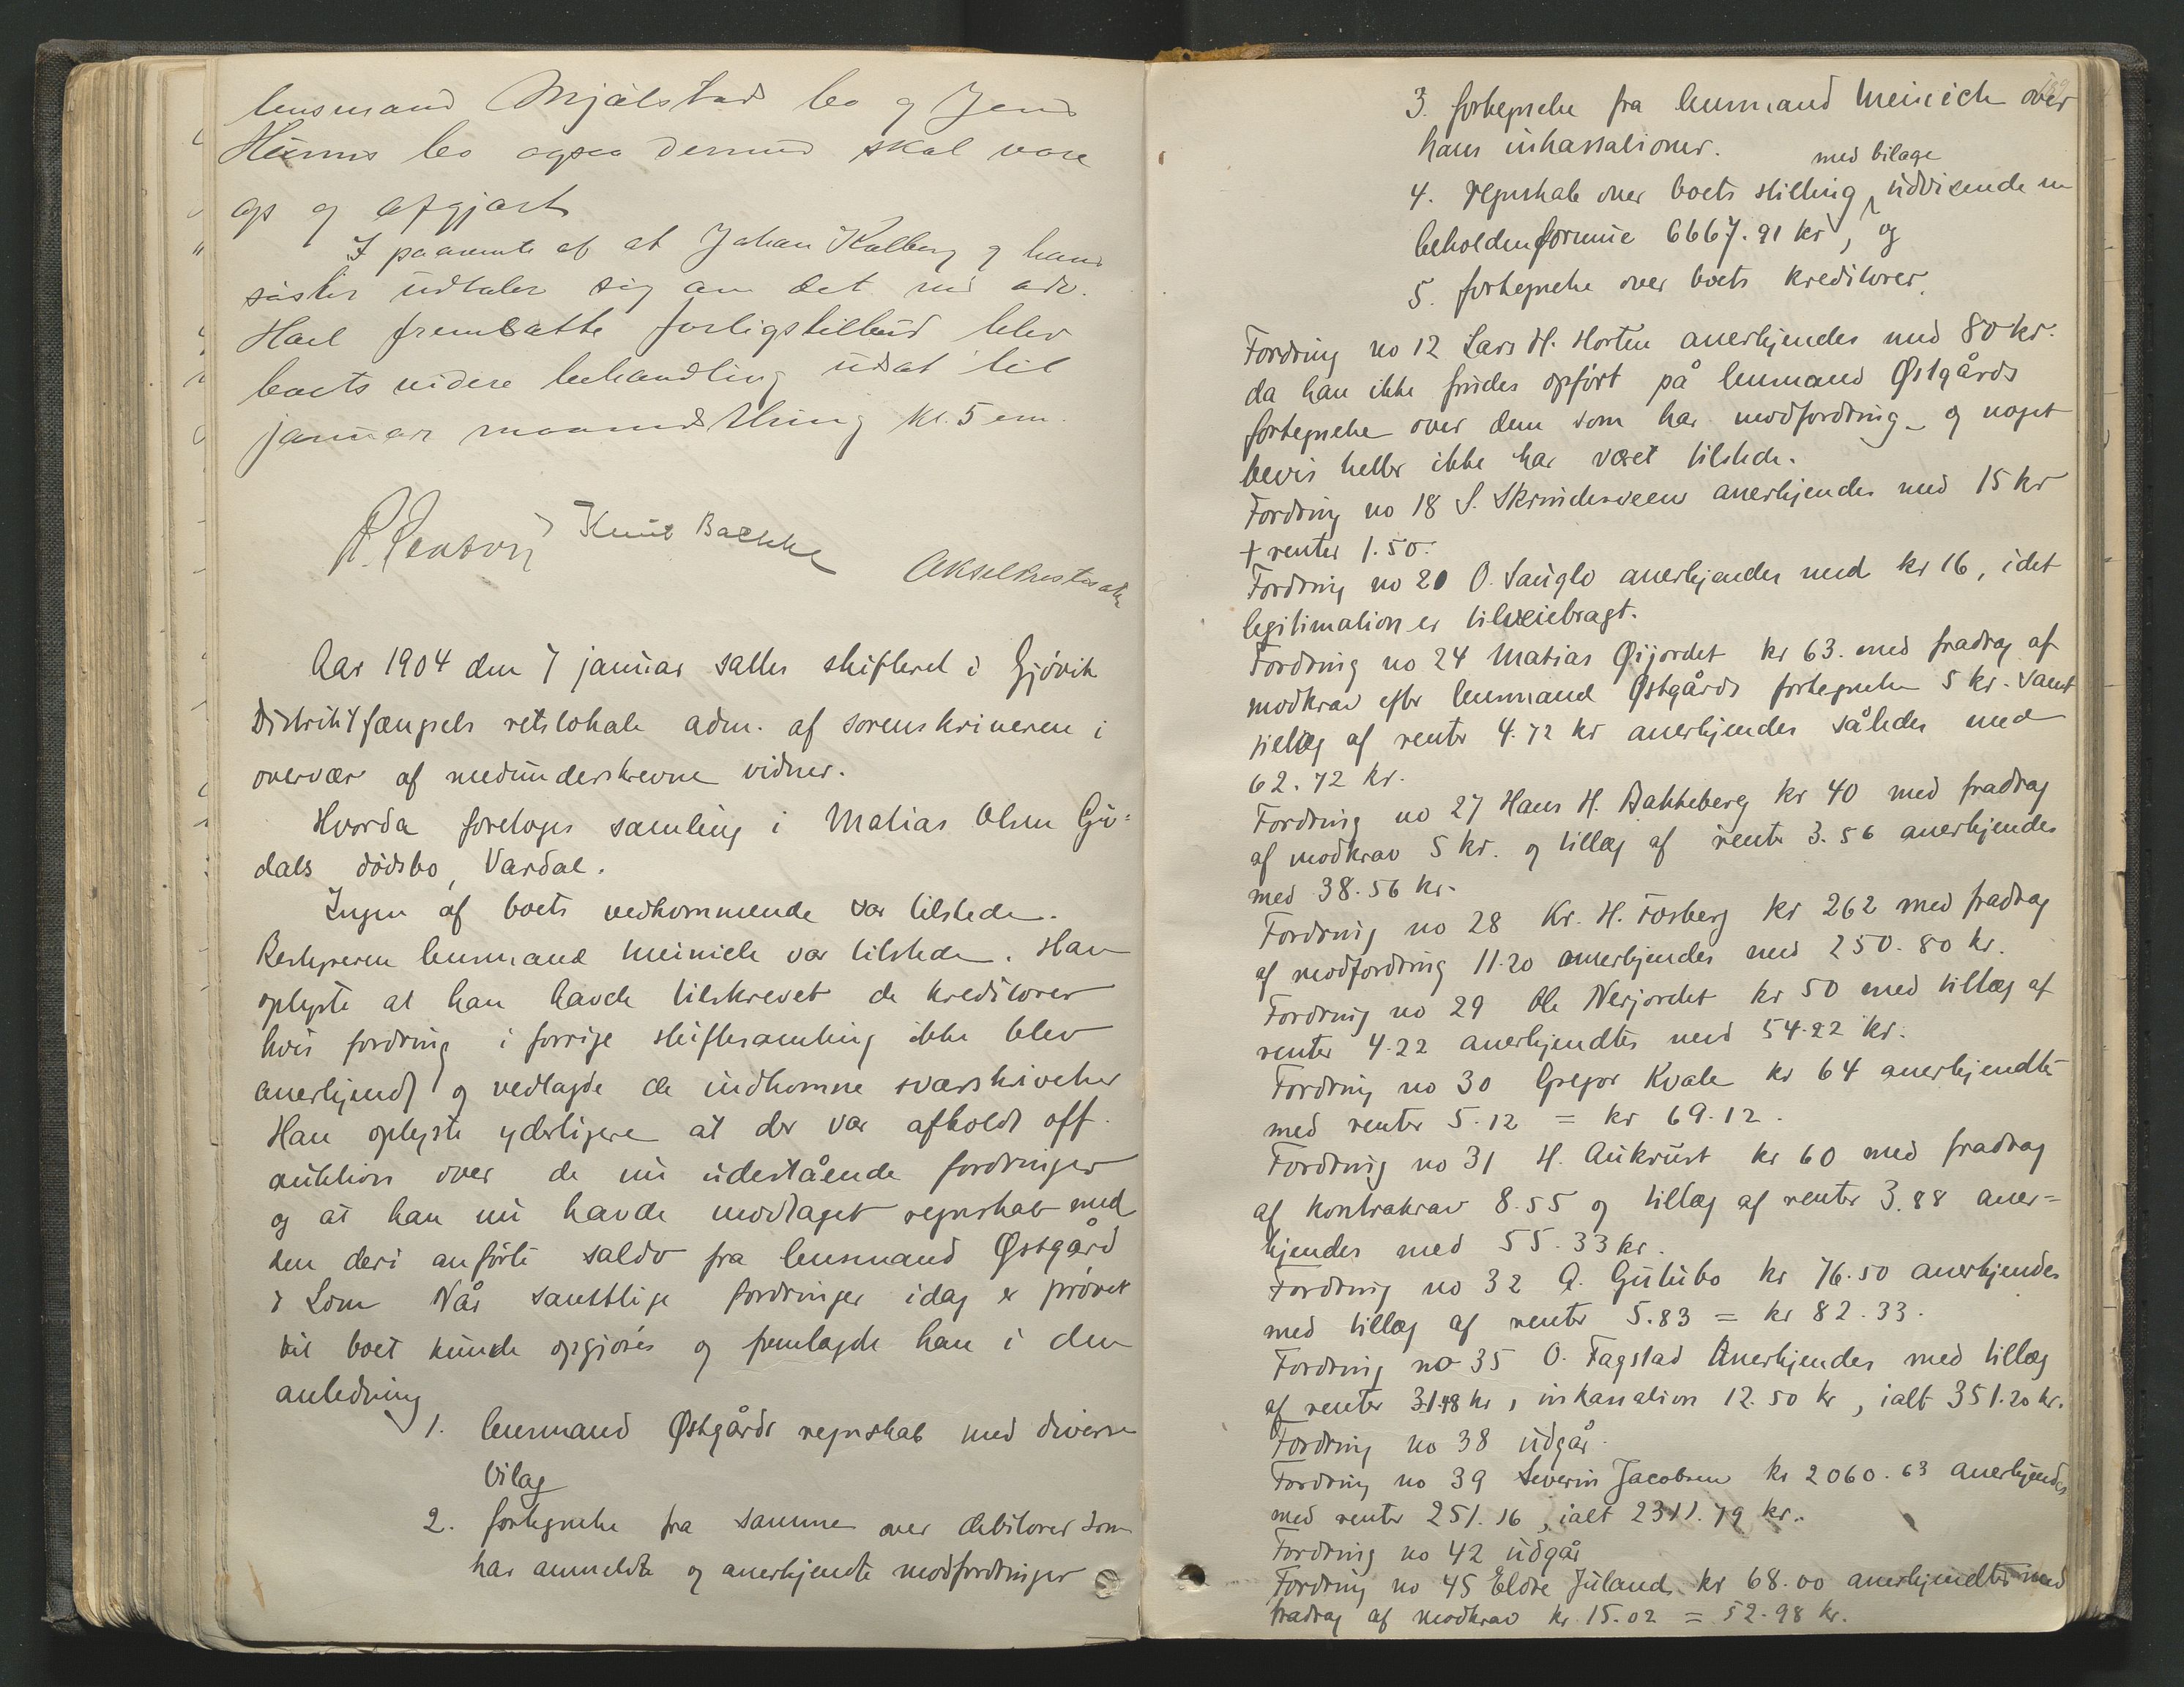 lensmand Mjælstad bo og Jens
bo ogsaa dermed skal være
op og afgjort
I paavente af at Johan Kalberg og hans
søster udtaler sig om det nu adv.
fremsatte forligstilbud blev
boets videre behandling udsat til
januar maanedsthing kl. 5 em.
Knut Bakke
Aar 1904 den 7 januar sattes skifteret i Gjøvik
Distriktfængsels retslokale adm. af sorenskriveren i
overvær af medunderskrevne vidner.
Hvorda foretoges samling i Matias Olsen Gju=
dals dødsbo, Vardal.
Ingen af boets vedkommende var tilstede.
Bestyreren lensmand Meinich var tilstede. Han
oplyste at han havde tilskrevet de kreditorer
hvis fordring i forrige skiftesamling ikke blev
anerkjendt og vedlagde de indkomne svarskrivelser
Han oplyste yderligere at der var afholdt off.
auktion over de nu udestående fordringer
og at han nu havde modtaget regnskab med
den deri anførte saldo fra lensmand Østgård
i Lom Når samtlige fordringer idag er prøvet
vil boet kunde opgjøres og fremlagde han i den
anledning
1. lensmand Østgårds regnskab med diverse
bilag
2. fortegnelse fra samme over debitorer som
har anmeldte og anerkjendte modfordringer
3. fortegnelse fra lensmand Meinich over
hans inkassationer.
med bilage
4. regnskab over boets stilling, udvisende en
beholden formue 6667.91 kr, og
5. fortegnelse over boets kreditorer.
Fordring no 12 Lars H. Horten anerkjendes med 80 kr.
da han ikke findes opført på lensmand Østgårds
fortegnelse over dem som har modfordring_ og noget
bevis heller ikke har været tilstede.
Fordring no 18 S. Skrindesveen anerkjendes med 15 kr
+ renter 1.50.
Fordring no 20 O. Sauglo anerkjendes med kr 16, idet
legitimation er tilveiebragt.
Fordring no 24 Matias Øijordet kr 63. med fradrag af
modkrav efter lensmand Østgårds fortegnelse 5 kr. samt
tillæg af renter 4.72 kr anerkjendes således med
62.72 kr.
Fordring no 27 Hans H. Bakkeberg kr 40 med fradrag
af modkrav 5 kr. og tillæg af rente 3.56 anerkjendes
med 38.56 kr.
Fordring no 28 Kr. H. Fosberg kr 262 med fradrag
af modfordring 11.20 anerkjendes med 250.80 kr.
Fordring no 29 Ole Nerjordet kr 50 med tillæg af
renter 4.22 anerkjendtes med 54.22 kr.
Fordring no 30 Gregor Kvale kr 64 anerkjendtes
med renter 5.12 = kr 69.12.
Fordring no 31 H. Aukrust kr 60 med fradrag
af kontrakrav 8.55 og tillæg af renter 3.88 aner=
kjendes med 55.33 kr.
Fordring no 32 A. Gulubo kr 76.50 anerkjendes
med tillæg af renter 5.83 = kr 82.33.
Fordring no 35 O. Fagstad Anerkjendes med tillæg
af renter 31.98 kr, inkassation 12.50 kr, ialt 351.20 kr.
Fordring no 38 udgår.
Fordring no 39 Severin Jacobsen kr 2060.63 anerkjendes
med renter 251.16, ialt 2311.79 kr.
Fordring no 42 udgår
Fordring no 45 Eldre Juland kr 68.00 anerkjendtes med
fradrag af modkrav kr. 15.02 = 52.98 kr.